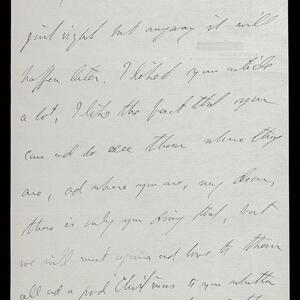 just right but anyway it will
happen later. I liked your article
a lot, I like the fact that you
can and do see them where they
are, and where you are, my dear,
there is only you doing that, but
we will meet again and love to them
all and a good Christmas to you